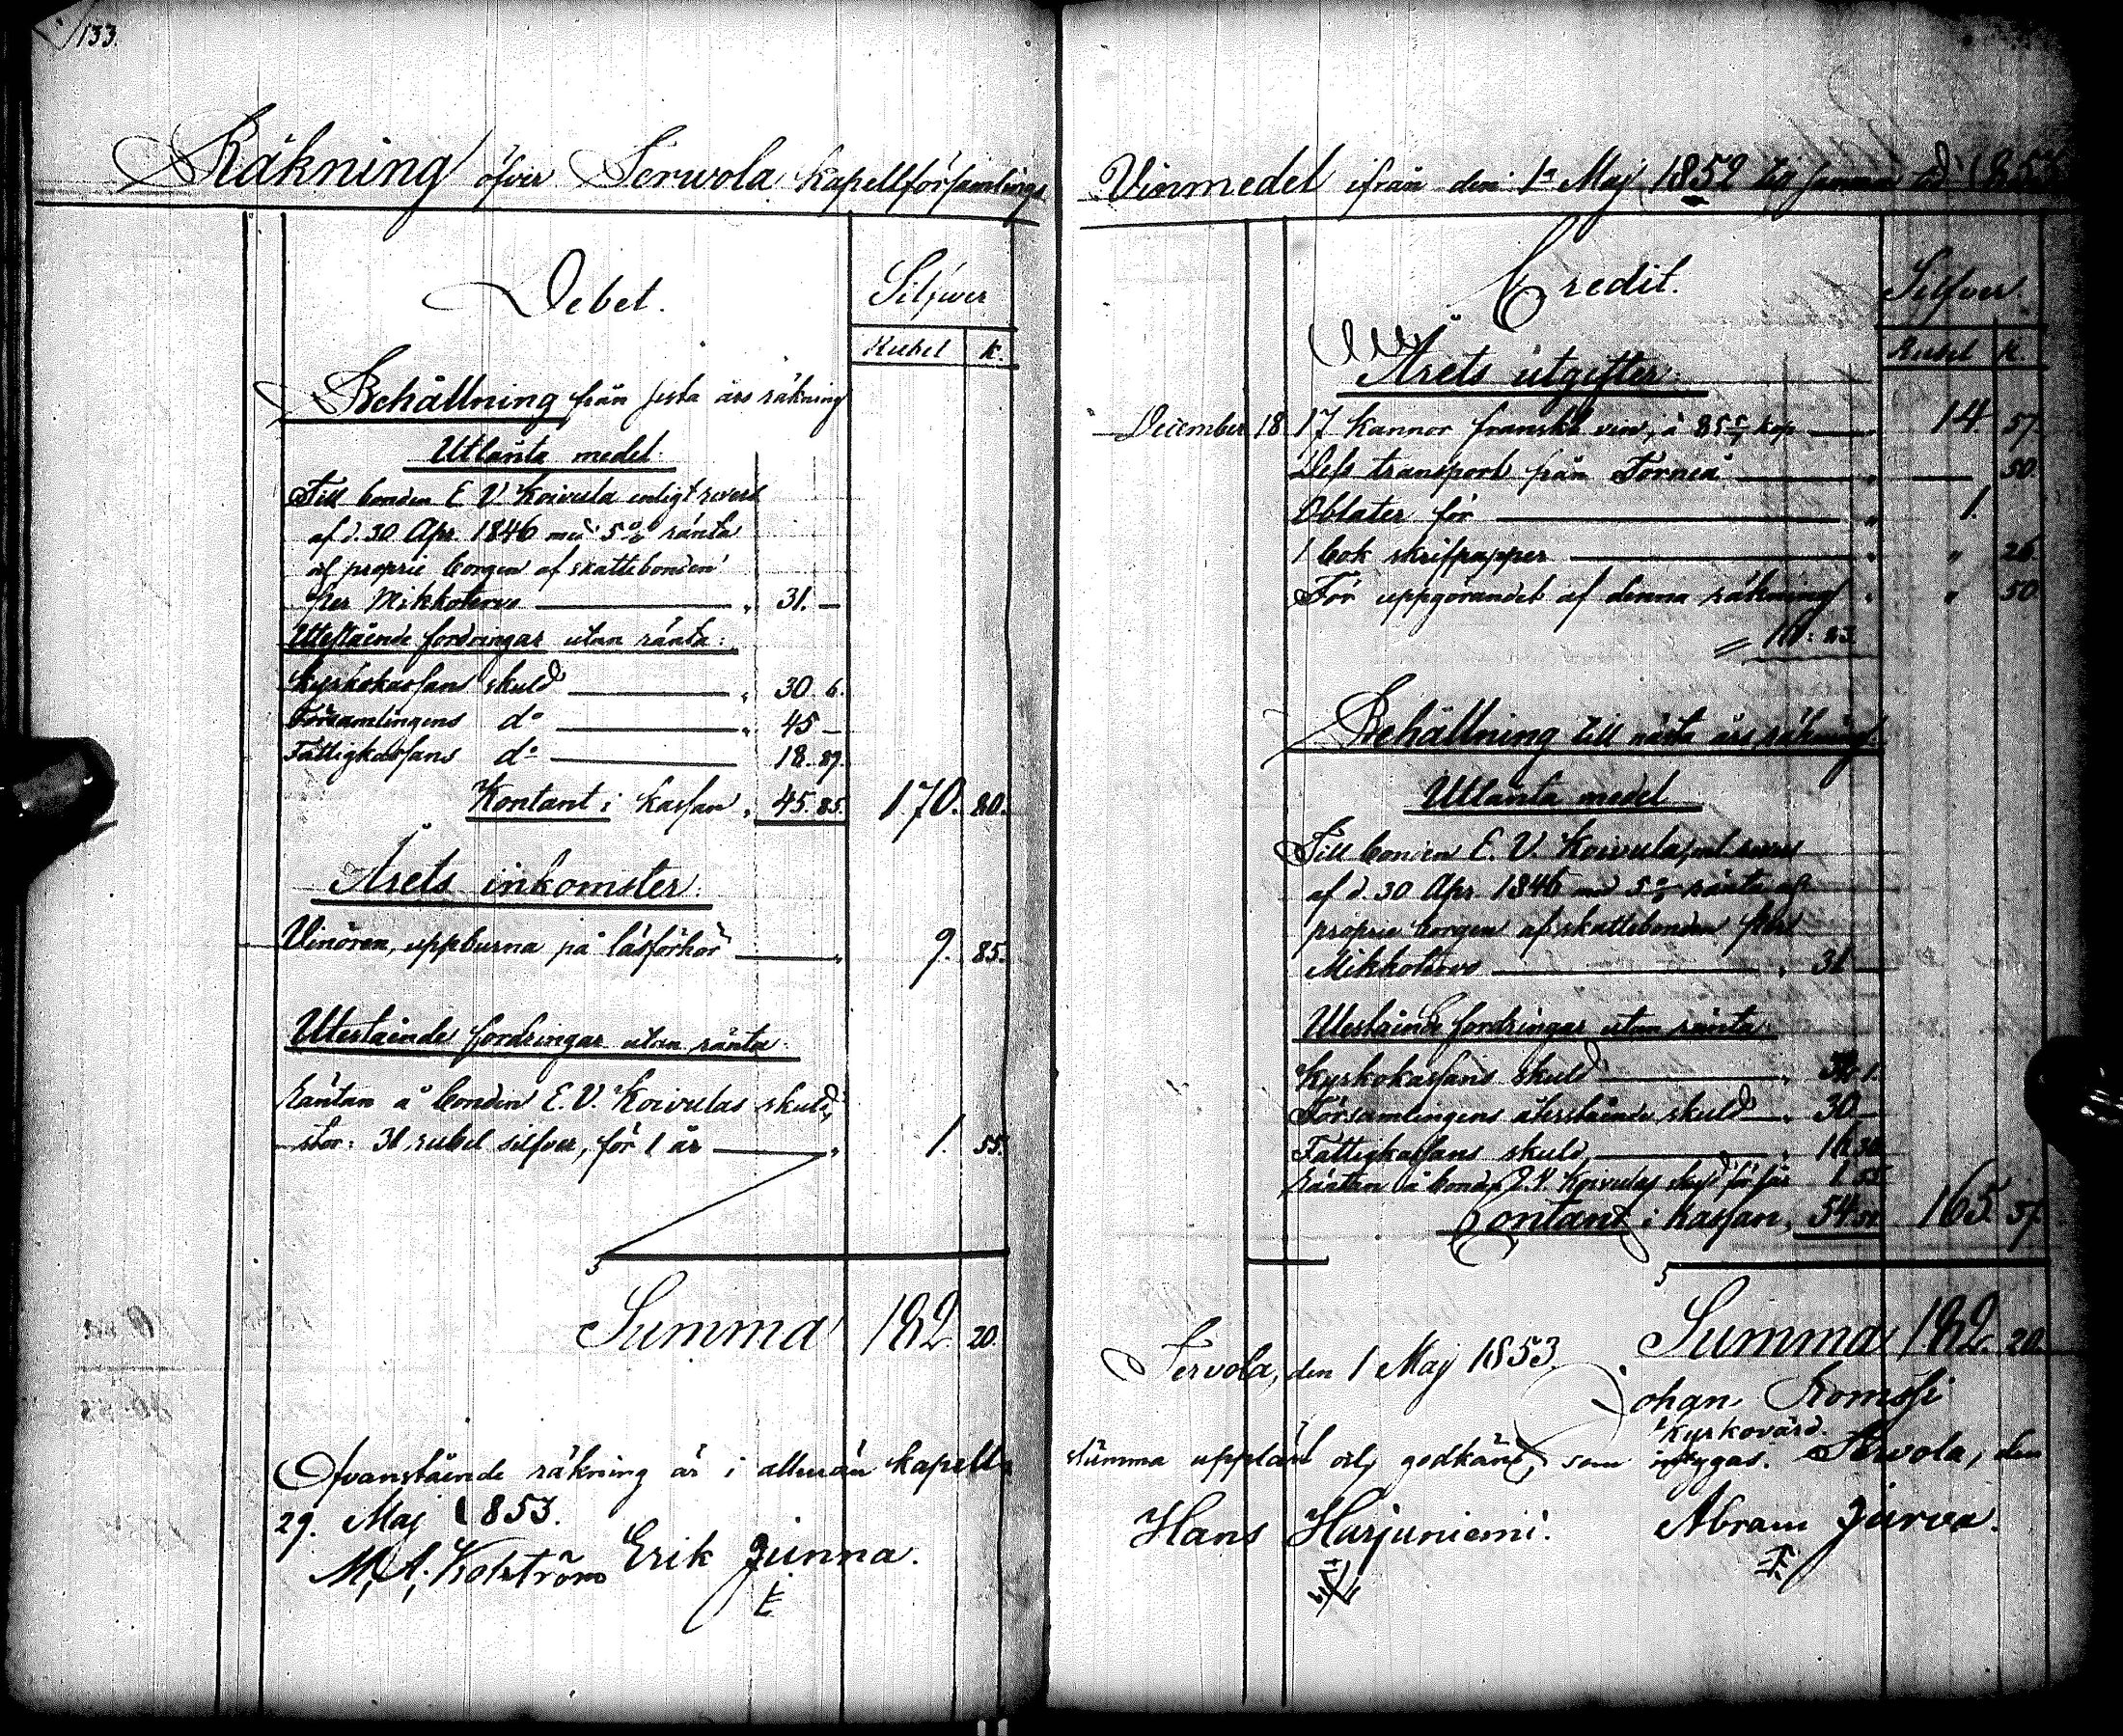 133.
Räkning öfver Terwola kapellförsamlings
Debet.
Silfwer
Rubel K.
Behållning från sista års räkning
Utlånta medel.
Till bonden E V Koivula enligt revers
af d. 30 Apr. 1846 med 5 % ränta
af proprie borgen af skattebonden
Per Mikkoterwo — " 31. —
Utestående fordringar utan ränta:
Kyrkokassan skuld — " 30. 6.
Församlingens d:o — " 45 —
Fattigkassans d:o — 18. 89.
Kontant i kassan " 45. 85. 170. 80.
Årets inkomster.
Vinören, uppburna på läsförhör — " 9. 85.
Utestående fordringar utan ränta.
Räntan å bonden E. V. Koivulas skuld,
stor: 31 rubel silfver, för 1 år — " 1. 55.
Summa 182. 20.
Ofvanstående räkning är i allmän kapell-
29. Maj 1853.
M. A. Kolström Erik Junna.
Vinmedel ifrån den 1a Maj 1852 til samma tid
Credit.
Silfver.
Rubel K.
Årets utgifter
December 18 17 kannor franskt vin, à 85 5/7 kop — 14. 57.
Dess transport från Torneå — " — 50.
Oblater för — " 1.
1 bok skrifpapper — " " 26.
För uppgörandet af denna räkning " " 50
= 16: 83.
Behållning till nästa års räkning.
Utlånta medel
Till bonden E. V. Koivula, enl. revers
af d. 30 Apr. 1846 med 5 % ränta af
proprie borgen af skattebonden Per
Mikkoterwo — " 31 —
Utestående fordringar utan ränta.
Kyrkokassans skuld — "
Församlingens återstående skuld — " 30 —
Fattigkassans skuld, — "
Räntan å bonden E. V. Koivulas skuld för 1 år 1. 55
Contant i kassan, 165. 37.
Summa 182. 20.
Tervola, den 1 Maj 1853.
Johan Romssi
Kyrkovärd.
stämma uppläst och godkänd, som intygas. Terwola, den
Hans Harjuniemi. Abram Jurva.